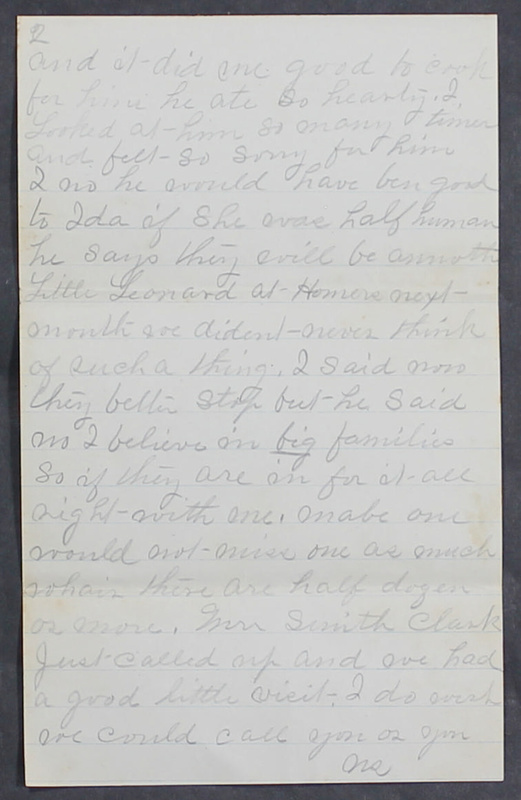 2
and it did me good to cook
for him he ate so hearty. I
Looked at him so many times
and felt so sorry for him
I no he would have ben good
to Ida if She was half human
he says they will be annoth
Little Leonard at Homers next
month we dident never think
of such a thing. I said now
they better stop but he said
no I believe in big families
so if they are in for it all
right with me. mabe one
would not miss one as much
whair there are half dozen
or more. Mrs Smith Clark
Just called up and we had
a good little visit. I do wish
we could call you or you
us